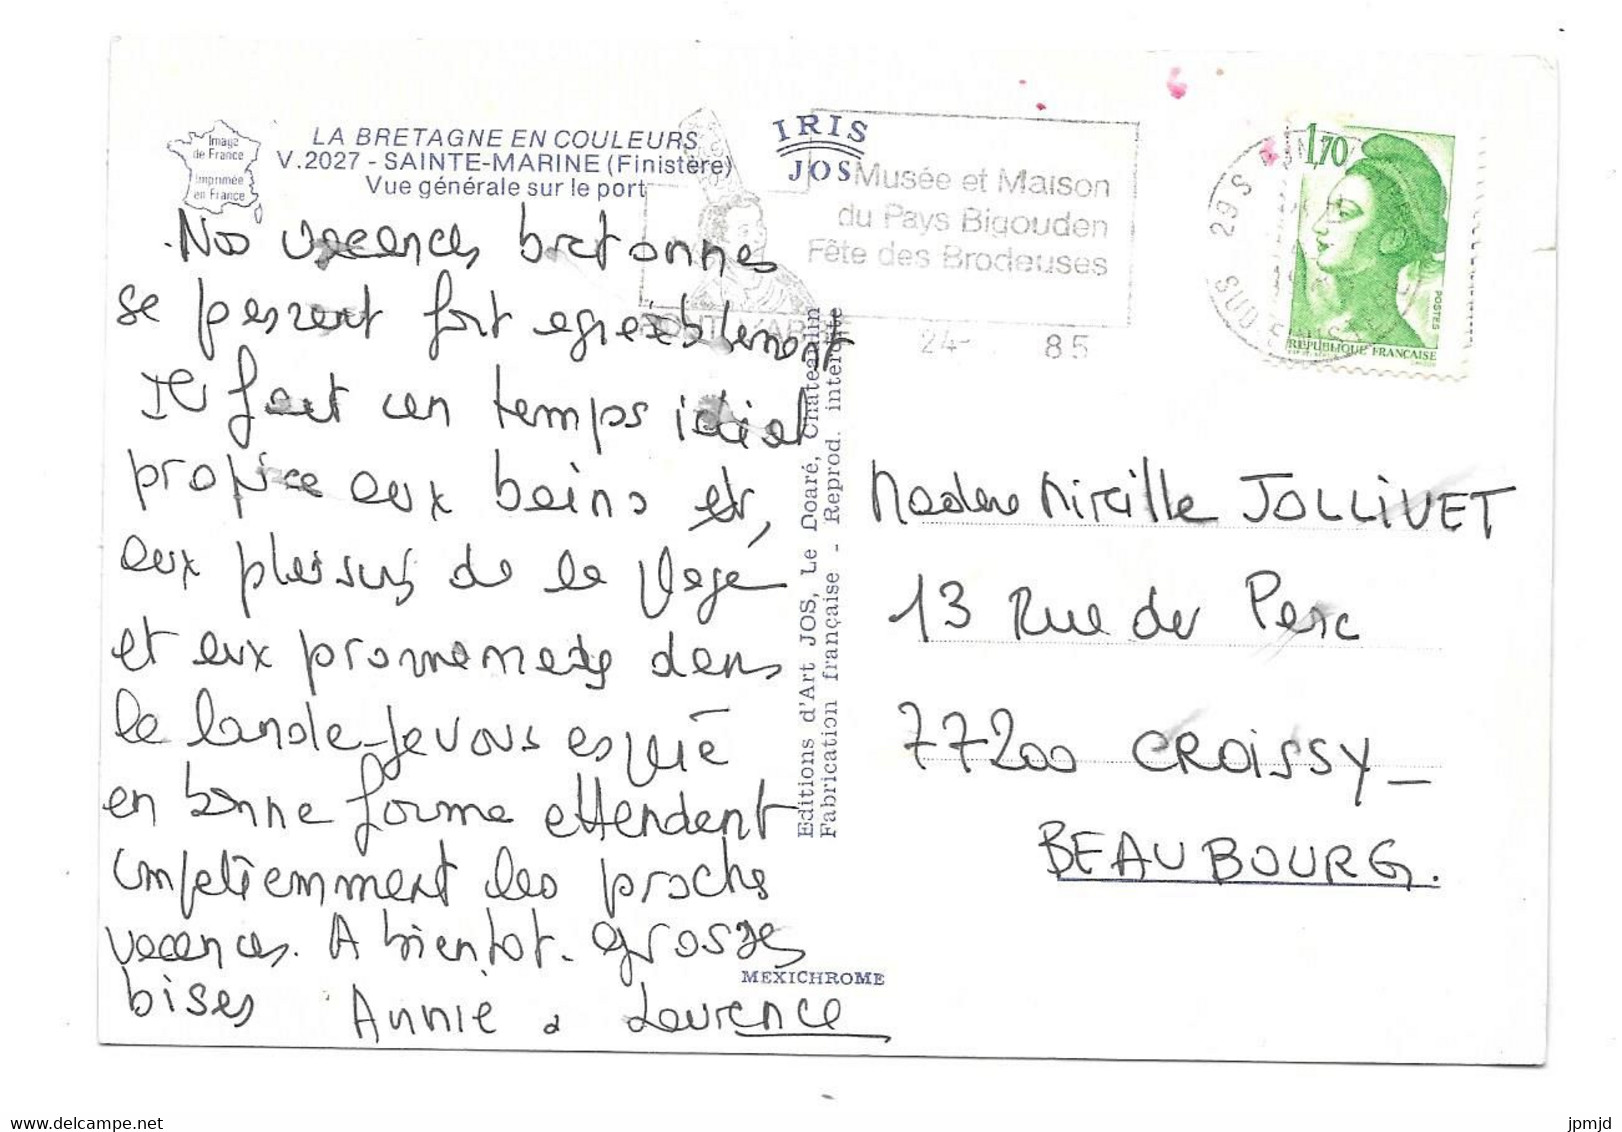 Image
de France
Imprimée
en France
LA BRETAGNE EN COULEURS
V.2027 - SAINTE-MARINE (Finistère)
Vue générale sur le port
IRIS
JOS
Musée et Maison
du Pays Bigouden
Fête des Brodeuses
24- 85
29 S
SUD FINISTERE
1,70
POSTES
REPUBLIQUE FRANCAISE
Nos vacances bretonnes
se passent fort agréablement
Il fait un temps idéal
propice aux bains et,
aux plaisirs de la plage
et aux promenades dans
la lande - Je vous espère
en bonne forme attendant
impatiemment les proches
vacances. A bientot. grosses
bises Annie & Laurence
Editions d'Art JOS, Le Doaré, Châteaulin
Fabrication française - Reprod. interdite
MEXICHROME
Madame Mireille JOLLIVET
13 Rue du Parc
77200 CROISSY-
BEAUBOURG.
www.delcampe.net
jpmjd